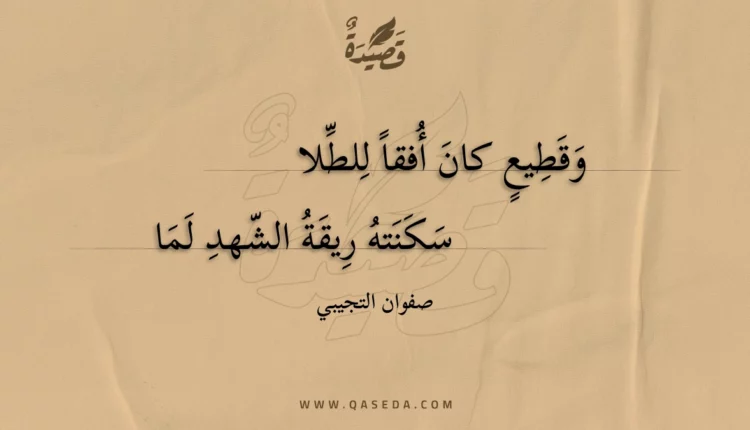 قَصِيدَةٌ
وَقَطِيعٍ كانَ أُفقاً لِلطِّلا
سَكَنَتهُ رِيقَةُ الشّهدِ لَمَا
صفوان التجيبي
WWW.QASEDA.COM